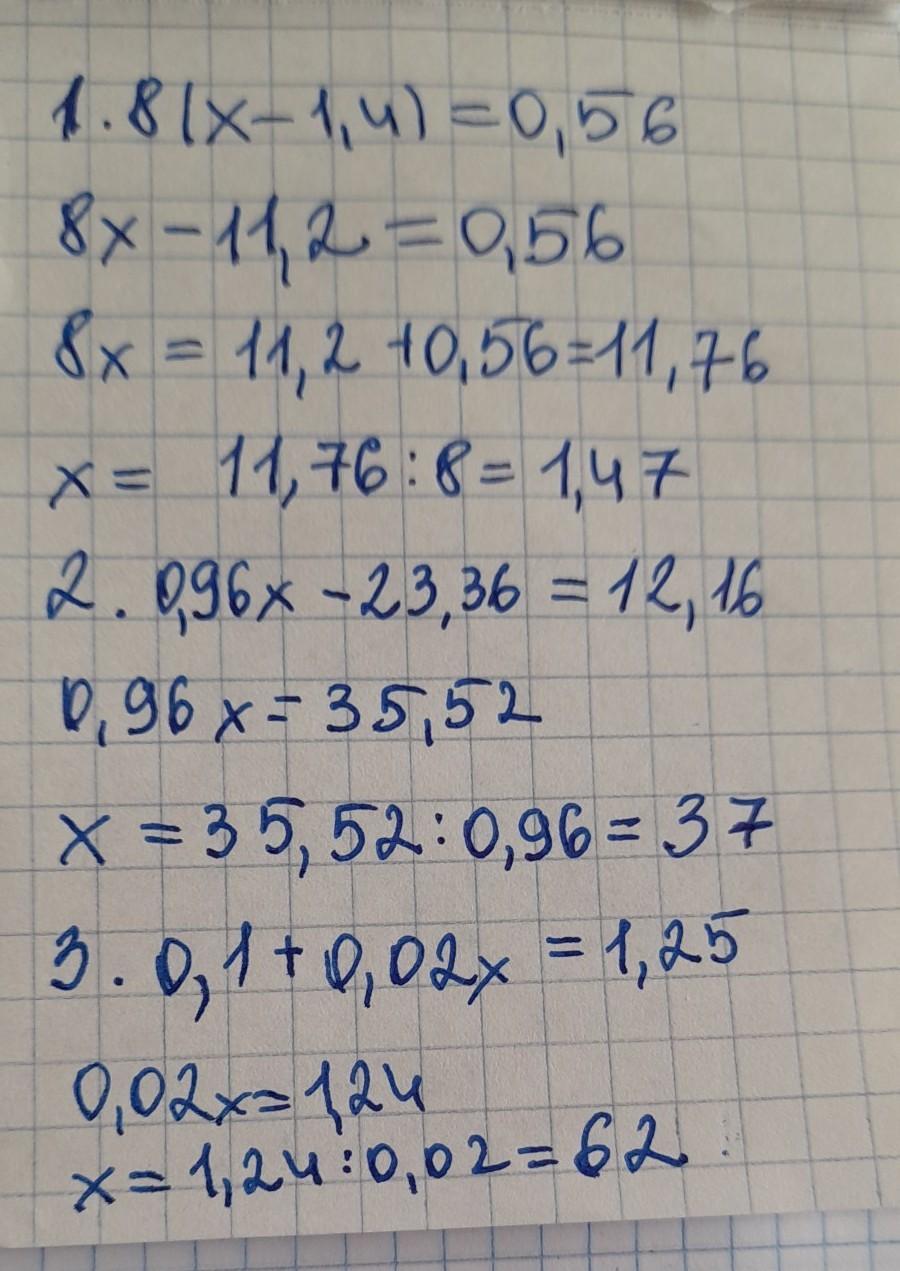 1. 8(x-1,4) = 0,56
8x - 11,2 = 0,56
8x = 11,2 + 0,56 = 11,76
x = 11,76 : 8 = 1,47
2. 0,96x - 23,36 = 12,16
0,96x = 35,52
x = 35,52 : 0,96 = 37
3. 0,1 + 0,02x = 1,25
0,02x = 1,24
x = 1,24 : 0,02 = 62